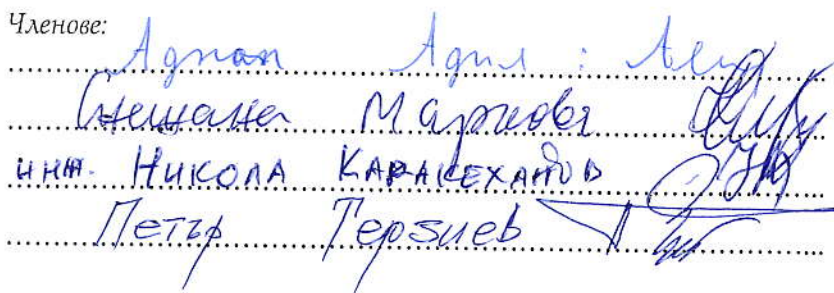 Членове:
Аднан Адил :
Снежана Маркова
инж. НИКОЛА КАРАКЕХАЙОВ
Петър Терзиев